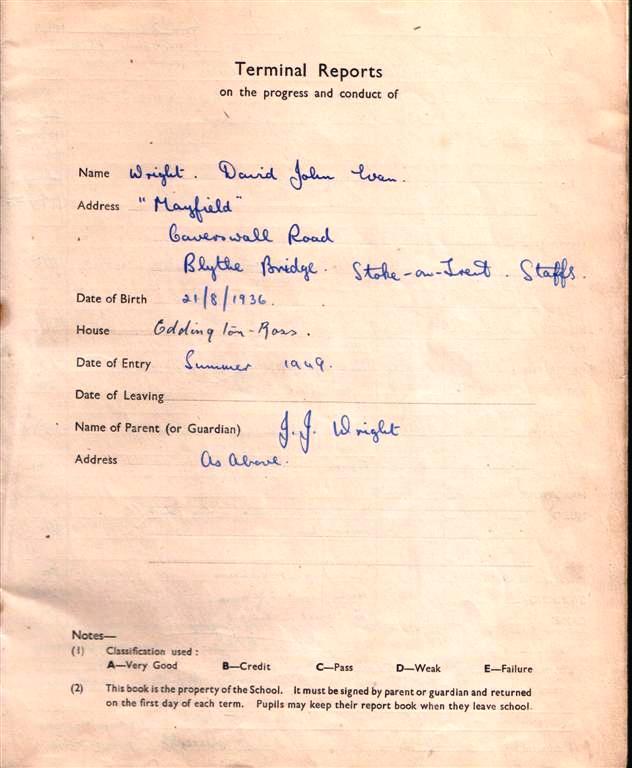 Terminal Reports
on the progress and conduct of
Name Wright. David John Evan.
Address "Mayfield"
Caverswall Road
Blythe Bridge. Stoke-on-Trent. Staffs.
Date of Birth 21/8/1936.
House Eddington-Ross.
Date of Entry Summer 1949.
Date of Leaving
Name of Parent (or Guardian) J. J. Wright
Address As Above.
Notes—
(1) Classification used :
A—Very Good B—Credit C—Pass D—Weak E—Failure
(2) This book is the property of the School. It must be signed by parent or guardian and returned
on the first day of each term. Pupils may keep their report book when they leave school.